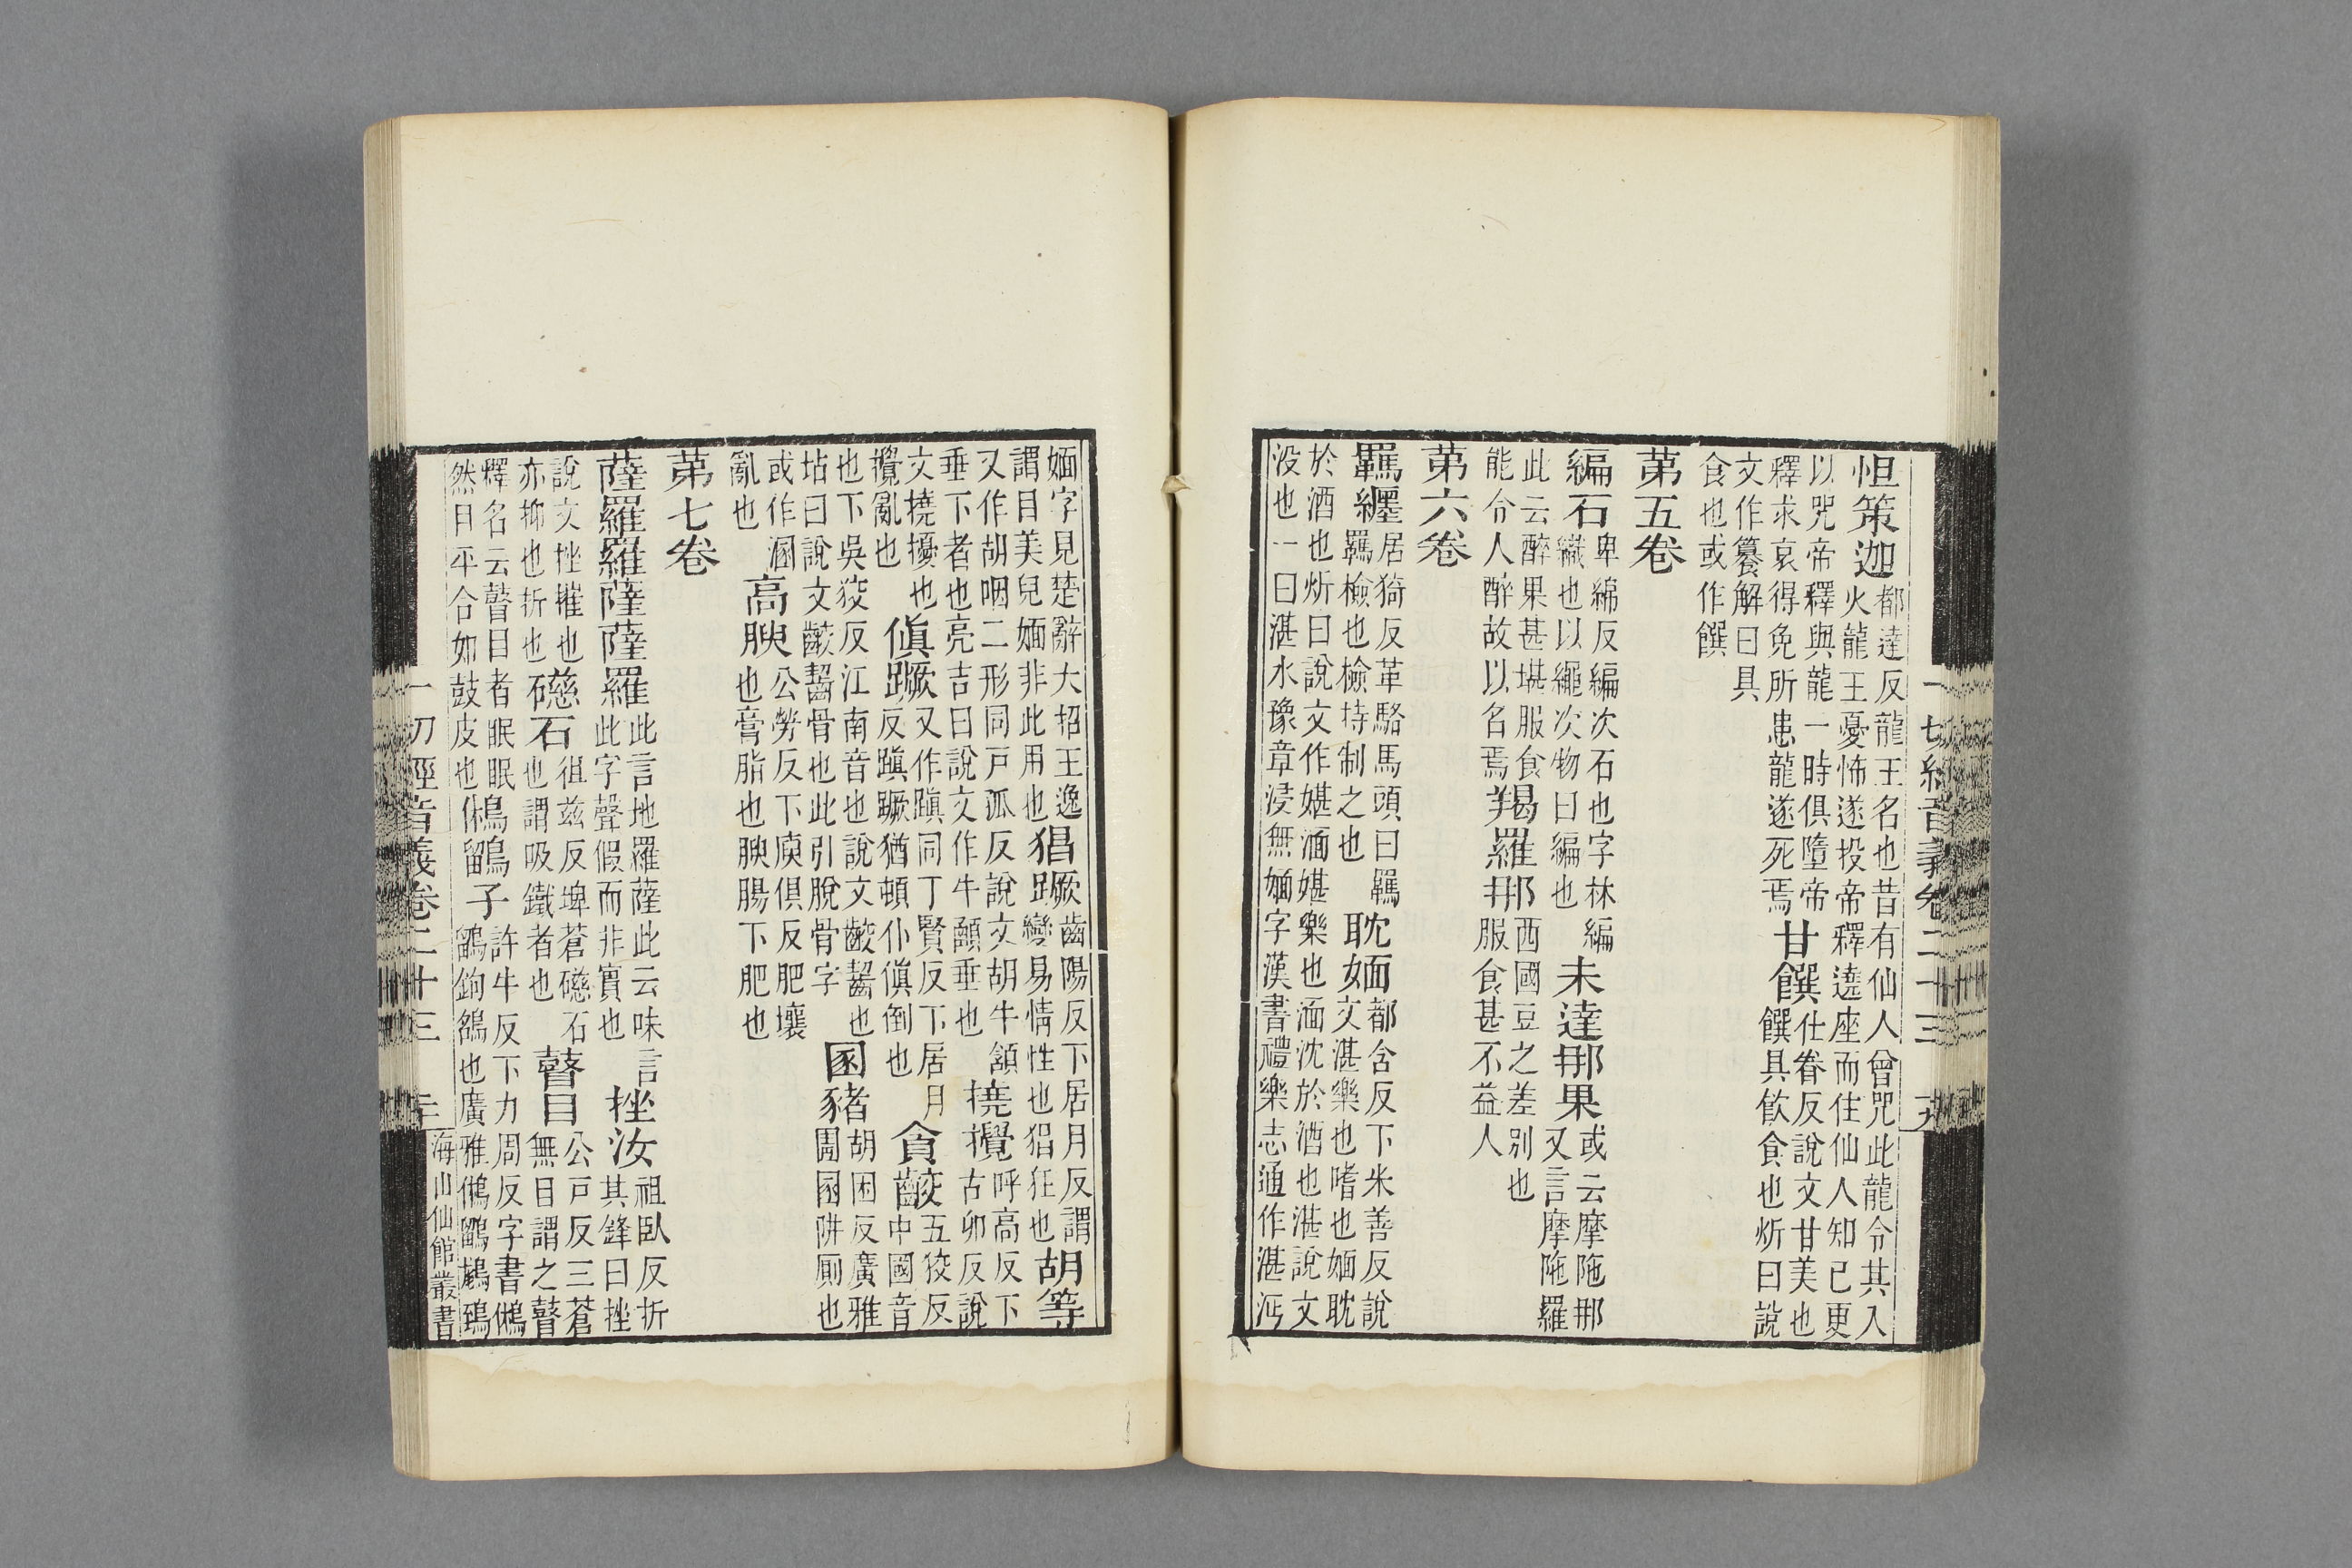 怛策迦都達反龍王名也昔有仙人曾咒此龍令其入
火龍王憂怖遂投帝釋遶座而住仙人知已更
以咒帝釋與龍一時俱墮帝
釋求哀得免所患龍遂死焉
甘饌仕眷反說文甘美也
饌具飲食也炘曰說
文作籑解曰具
食也或作饌
第五卷
編石卑綿反編次石也字林編
織也以繩次物曰編也
未達那果或云摩陁那
又言摩陁羅
此云醉果甚堪服食
能令人醉故以名焉
羯羅那西國豆之差別也
服食甚不益人
第六卷
羈纏居猗反革駱馬頭曰羈
羈檢也檢持制之也
耽媔都含反下米善反說
文湛樂也嗜也媔耽
於酒也炘曰說文作媅湎媅樂也湎沈於酒也湛說文
沒也一曰湛水豫章浸無媔字漢書禮樂志通作湛湛沔
一切經音義卷二十三
媔字見楚辭大招王逸
謂目美皃媔非此用也
猖蹶齒陽反下居月反謂
變易情性也猖狂也
胡等
又作胡咽二形同戸孤反說文胡牛頷
垂下者也亮吉曰說文作牛顄垂也
撓攪呼高反下
古卯反說
文撓擾也
攪亂也
傎蹶又作蹎同丁賢反下居月
反蹎蹶猶頓仆傎倒也
貪齩五狡反
中國音
也下吳狡反江南音也說文齩齧也
坫曰說文齩齧骨也此引脫骨字
圂豬胡困反廣雅
圊圂屏廁也
或作溷
亂也
高腴公勞反下庾俱反肥壤
也膏脂也腴腸下肥也
第七卷
薩羅羅薩薩羅此言地羅薩此云味言
此字聲假而非實也
挫汝祖臥反折
其鋒曰挫
說文挫摧也
亦抑也折也
礠石徂兹反埤蒼礠石
也謂吸鐵者也
瞽目公戸反三蒼
無目謂之瞽
釋名云瞽目者眠眠
然目平合如鼓皮也
鵂鶹子許牛反下力周反字書鵂
鶹鉤鵅也廣雅鵂鶹
一切經音義卷二十三
海山仙館叢書